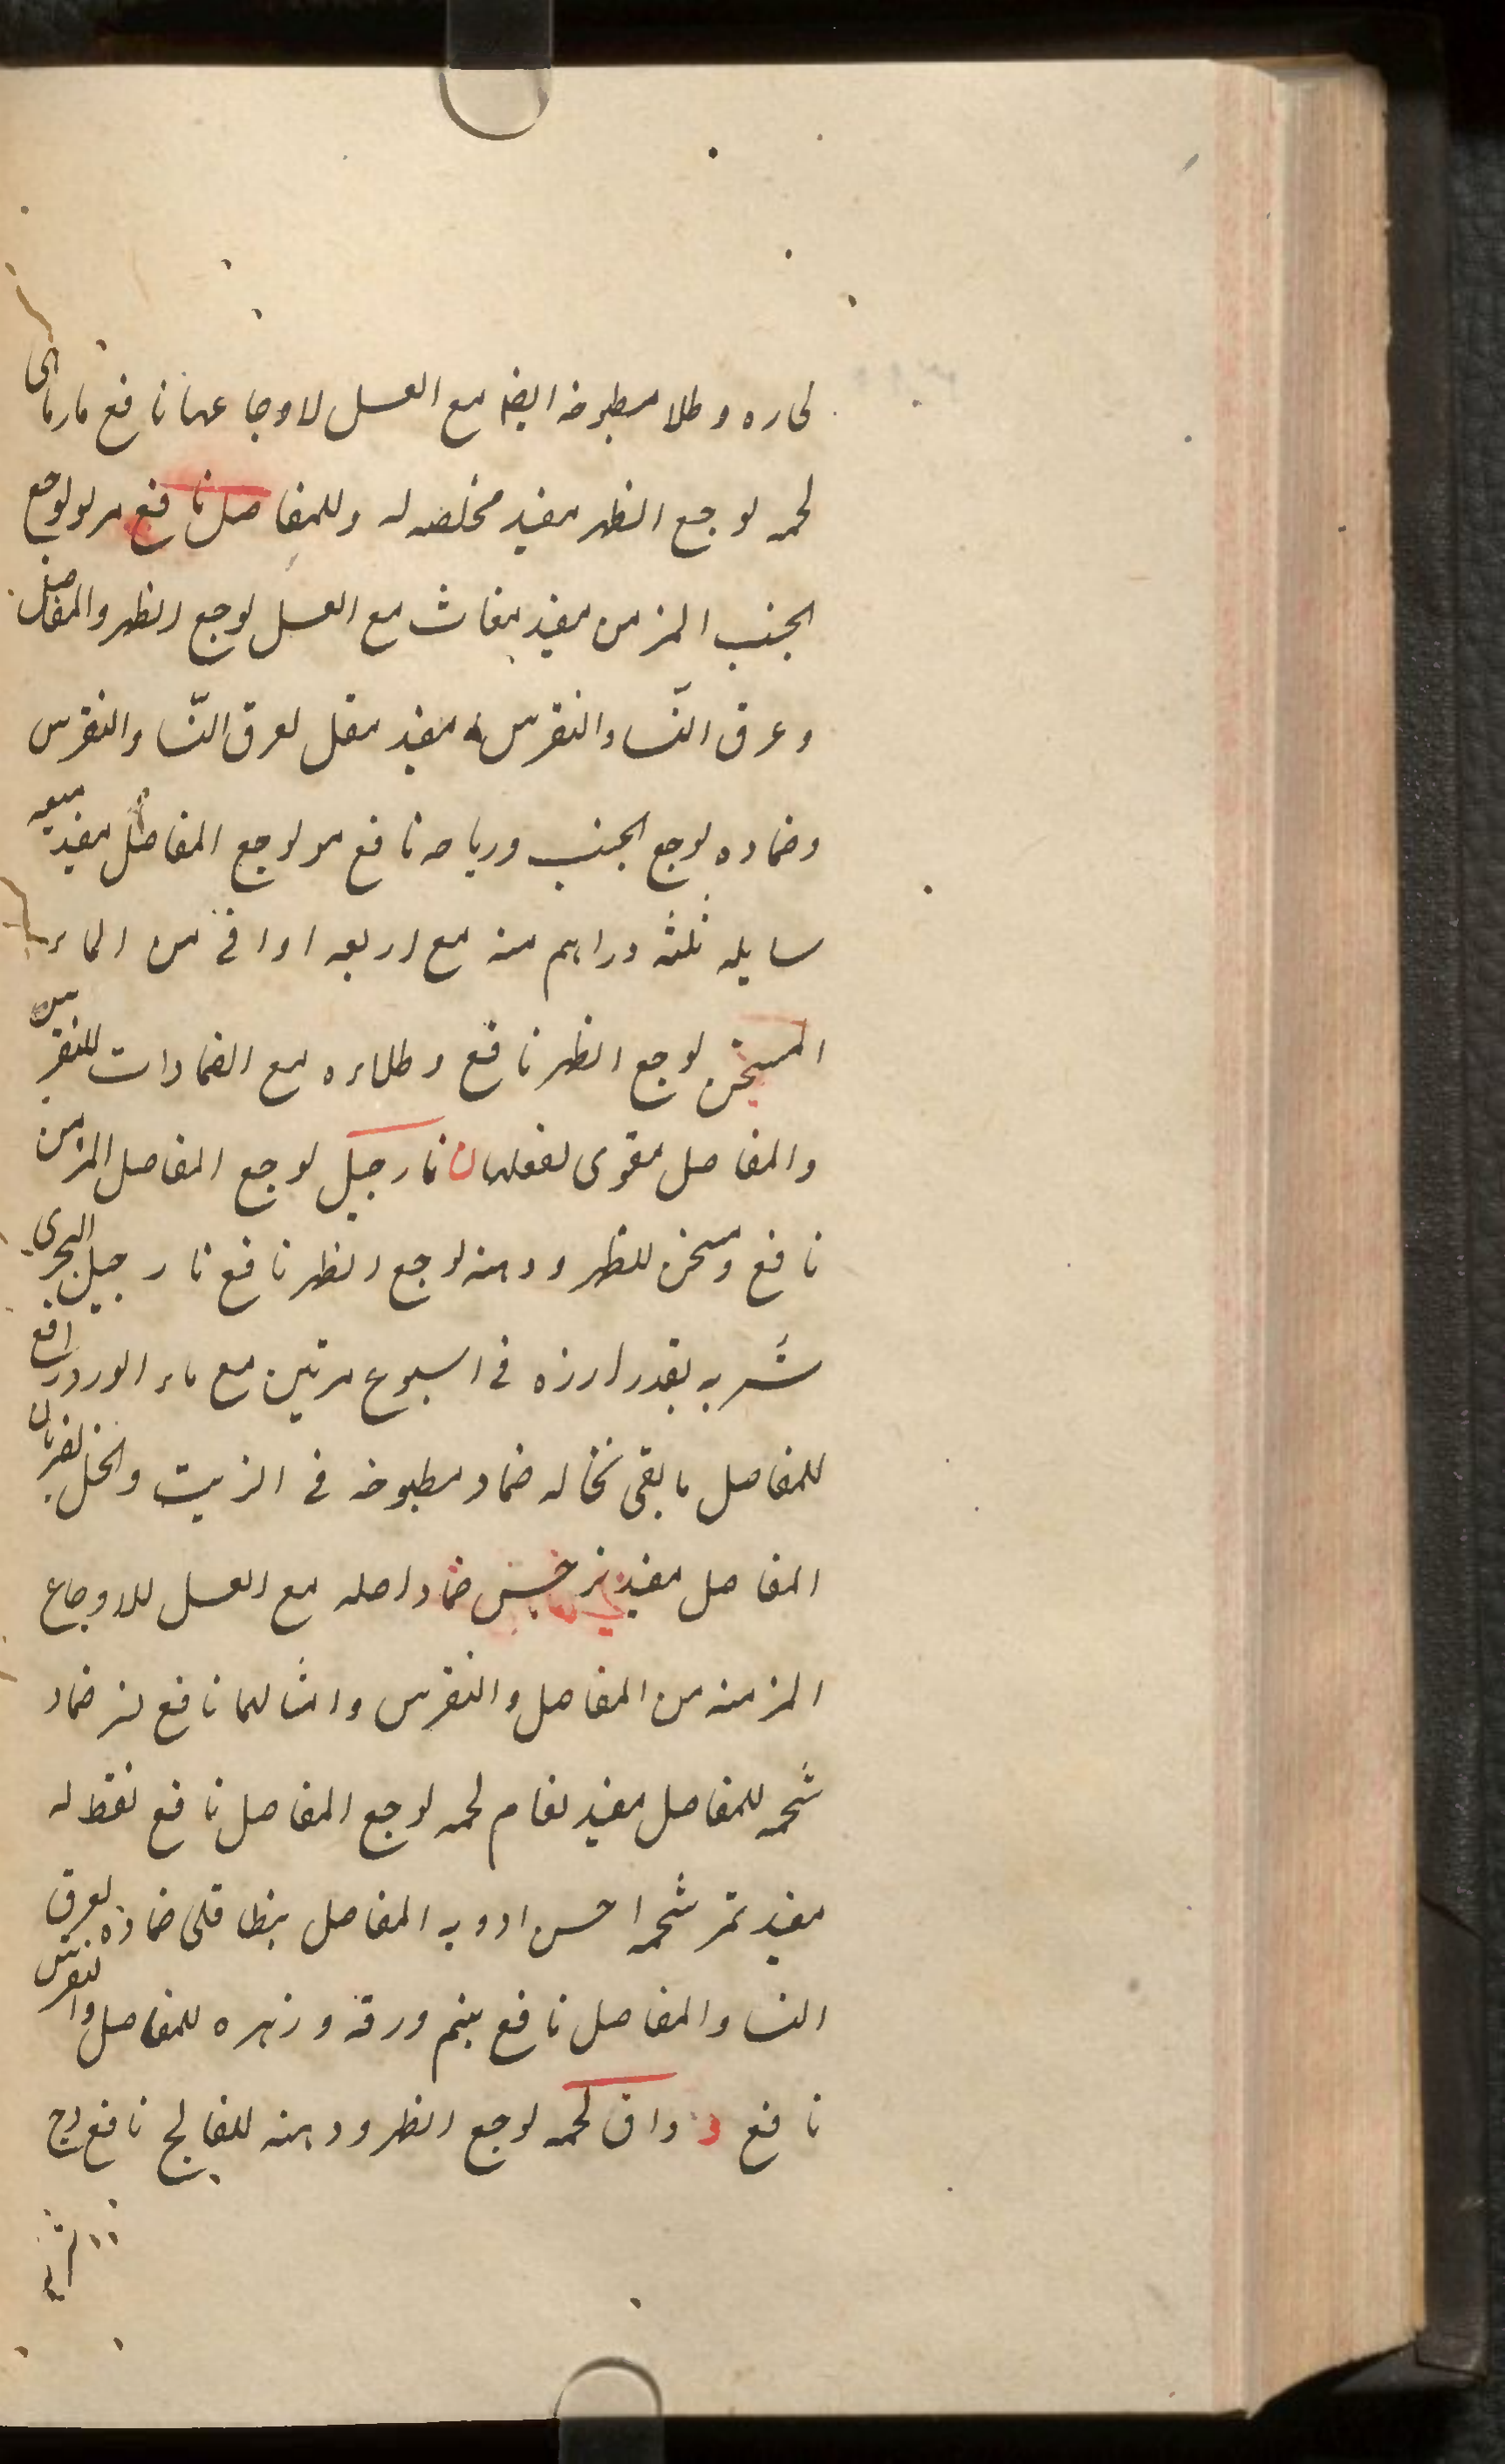 لحاره وطلا مطبوخه ايضا مع العسل لاوجاعها نافع مارماهى
لحمه لوجع الظهر مفيد مخلصه له وللمفاصل نافع مر لوجع
الجنب المزمن مفيد مغاث مع العسل لوجع الظهر والمفاصل
وعرق النّسا والنقرس مفيد مقل لعرق النّسا والنقرس
وضماده لوجع الجنب ورياحه نافع مو لوجع المفاصل مفيد ميعه
سايله ثلثه دراهم منه مع اربعه اواقى من الماء
المسخن لوجع الظهر نافع وطلاءه مع الضمادات للنقرس
والمفاصل مقوى لفعلها ن نارجيل لوجع المفاصل المزمن
نافع ومسخن للظهر ودهنه لوجع الظهر نافع نارجيل البحرى
شربه بقدر ارزه فى اسبوع مرتين مع ماء الورد رافع
للمفاصل ما بقى نخاله ضماد مطبوخه فى الزيت والخل لضربان
المفاصل مفيد نرجس ضماد اصله مع العسل للاوجاع
المزمنه من المفاصل والنقرس وامثالهما نافع نسر ضماد
شحمه للمفاصل مفيد نعام لحمه لوجع المفاصل نافع نفط له
مفيد نمر شحمه احسن ادويه المفاصل ينطاقلى ضماده لعرق
النسا والمفاصل نافع ينم ورقه وزهره للمفاصل والنقرس
نافع و واق لحمه لوجع الظهر ودهنه للفالج نافع وج